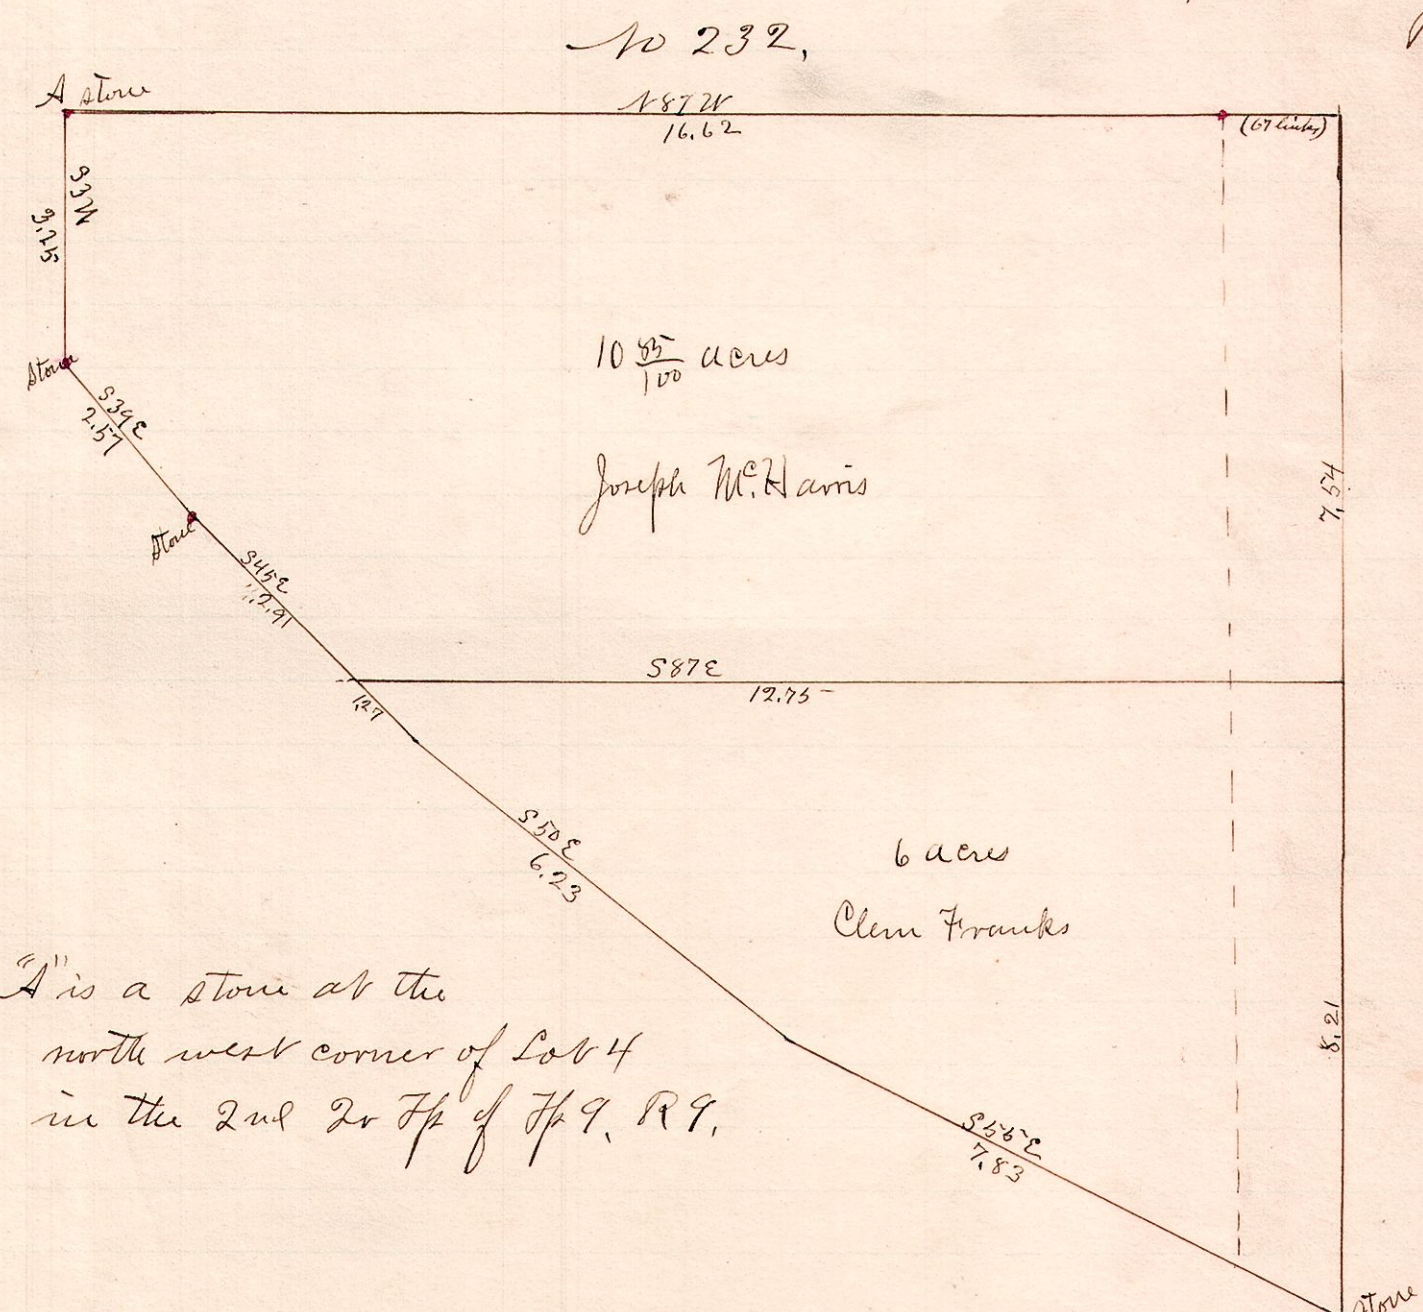 No 232,
A stone
N87W
16.62
(67 links)
S3W
3,25
Stone
S39E
2.57
Stone
S45E
2.91
10 85/100 acres
Joseph Mc. Harris
7,54
S87E
12.75
1,27
S50E
6.23
6 acres
Clem Franks
8,21
"A" is a stone at the
north west corner of Lot 4
in the 2nd Qr Tp of Tp 9, R 9,
S55E
7.83
Stone